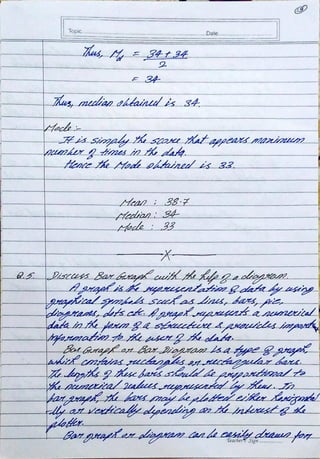 Topic Date
Thus, Md = 34 + 34
2
= 34
Thus, median obtained is 34.
Mode :-
It is simply the score that appears maximum
number of times in the data.
Hence the Mode obtained is 33.
Mean : 38.7
Median : 34
Mode : 33
X
Q.5. Discuss Bar Graph with the help of a diagram
A graph is the representation of data by using
graphical symbols such as lines, bars, pie,
diagrams, dots etc. A graph represents a numerical
data in the form of a structure & provides important
information to the user of the data.
Bar Graph or Bar Diagram is a type of graph
which contains rectangles or rectangular bars.
The lengths of these bars should be proportional to
the numerical values represented by them. In
bar graph, the bars may be plotted either horizontal
-ly or vertically depending on the interest of the
plotter.
Bar graph or diagram can be easily drawn for
Teacher's Sign